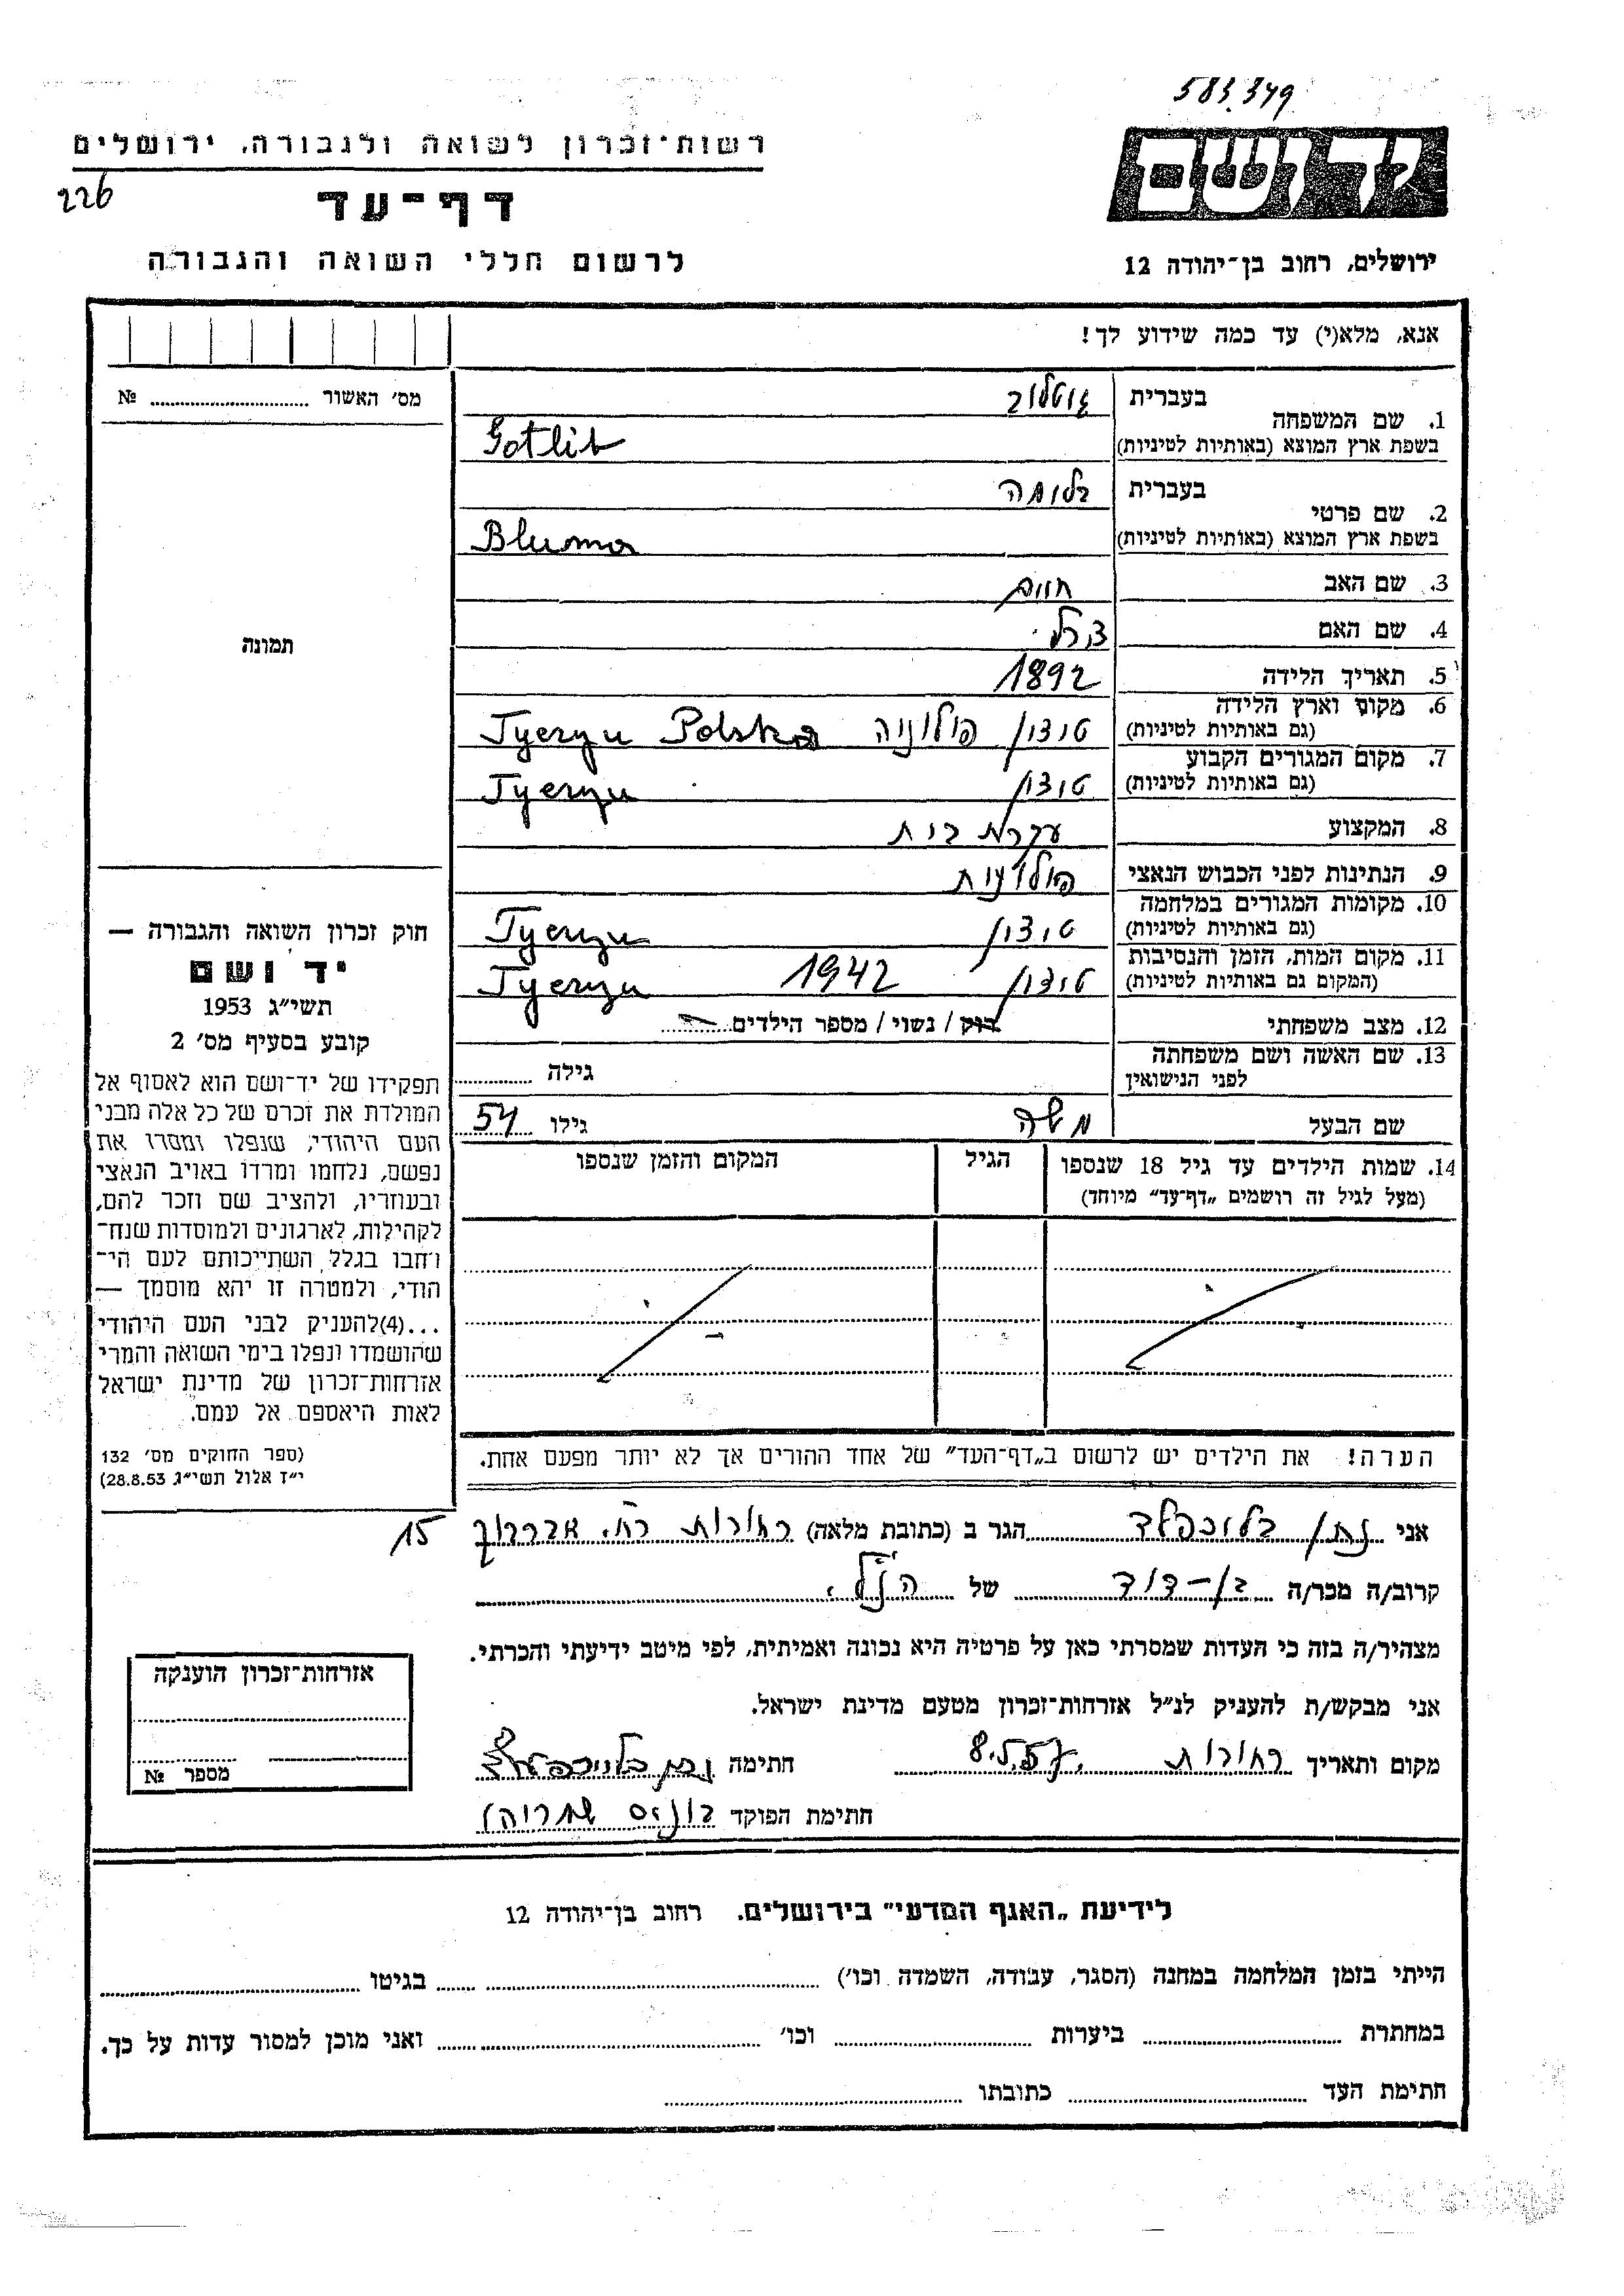 583.349
רשות־זכרון לשואה ולגבורה, ירושלים
226
דף־עד
לרשום חללי השואה והגבורה
יד ושם
ירושלים, רחוב בן־יהודה 12
אנא, מלא(י) עד כמה שידוע לך!
מס׳ האשור № ........
1. שם המשפחה
בעברית גוטליב
בשפת ארץ המוצא (באותיות לטיניות) Gotlib
2. שם פרטי
בעברית בלומה
בשפת ארץ המוצא (באותיות לטיניות) Bluma
3. שם האב חיים
4. שם האם
5. תאריך הלידה 1892
6. מקום וארץ הלידה טוצין פולוניה Tyczyn Polska
(גם באותיות לטיניות)
7. מקום המגורים הקבוע טוצין Tyczyn
(גם באותיות לטיניות)
8. המקצוע עקרת בית
9. הנתינות לפני הכבוש הנאצי פולנית
10. מקומות המגורים במלחמה טוצין Tyczyn
(גם באותיות לטיניות)
11. מקום המות, הזמן והנסיבות טוצין 1942 Tyczyn
(המקום גם באותיות לטיניות)
12. מצב משפחתי רוק / נשוי / מספר הילדים
13. שם האשה ושם משפחתה
לפני הנישואין גילה
שם הבעל משה גילו 54
14. שמות הילדים עד גיל 18 שנספו
(מעל לגיל זה רושמים „דף־עד״ מיוחד)
הגיל
המקום והזמן שנספו
הערה! את הילדים יש לרשום ב„דף־העד״ של אחד ההורים אך לא יותר מפעם אחת.
תמונה
חוק זכרון השואה והגבורה —
יד ושם
תשי״ג 1953
קובע בסעיף מס׳ 2
תפקידו של יד־ושם הוא לאסוף אל
המולדת את זכרם של כל אלה מבני
העם היהודי, שנפלו ומסרו את
נפשם, נלחמו ומרדו באויב הנאצי
ובעוזריו, ולהציב שם וזכר להם,
לקהילות, לארגונים ולמוסדות שנח־
רחבו בגלל השתייכותם לעם הי־
הודי, ולמטרה זו יהא מוסמך —
...(4)להעניק לבני העם היהודי
שהושמדו ונפלו בימי השואה והמרי
אזרחות־זכרון של מדינת ישראל
לאות היאספם אל עמם.
(ספר החוקים מס׳ 132
י״ז אלול תשי״ג 28.8.53)
אני נתן בלוכפלד הגר ב (כתובת מלאה) רחובות רח׳ 15
קרוב/ה מכר/ה בן־דוד של הנ״ל
מצהיר/ה בזה כי העדות שמסרתי כאן על פרטיה היא נכונה ואמיתית, לפי מיטב ידיעתי והכרתי.
אני מבקש/ת להעניק לנ״ל אזרחות־זכרון מטעם מדינת ישראל.
מקום ותאריך רחובות 8.5.57 חתימה
חתימת הפוקד
אזרחות־זכרון הוענקה
מספר №
לידיעת „האגף המדעי״ בירושלים. רחוב בן־יהודה 12
הייתי בזמן המלחמה במחנה (הסגר, עבודה, השמדה וכו׳) ........ בגיטו ........
במחתרת ........ ביערות ........ וכו׳ ........ ואני מוכן למסור עדות על כך.
חתימת העד ........ כתובתו ........